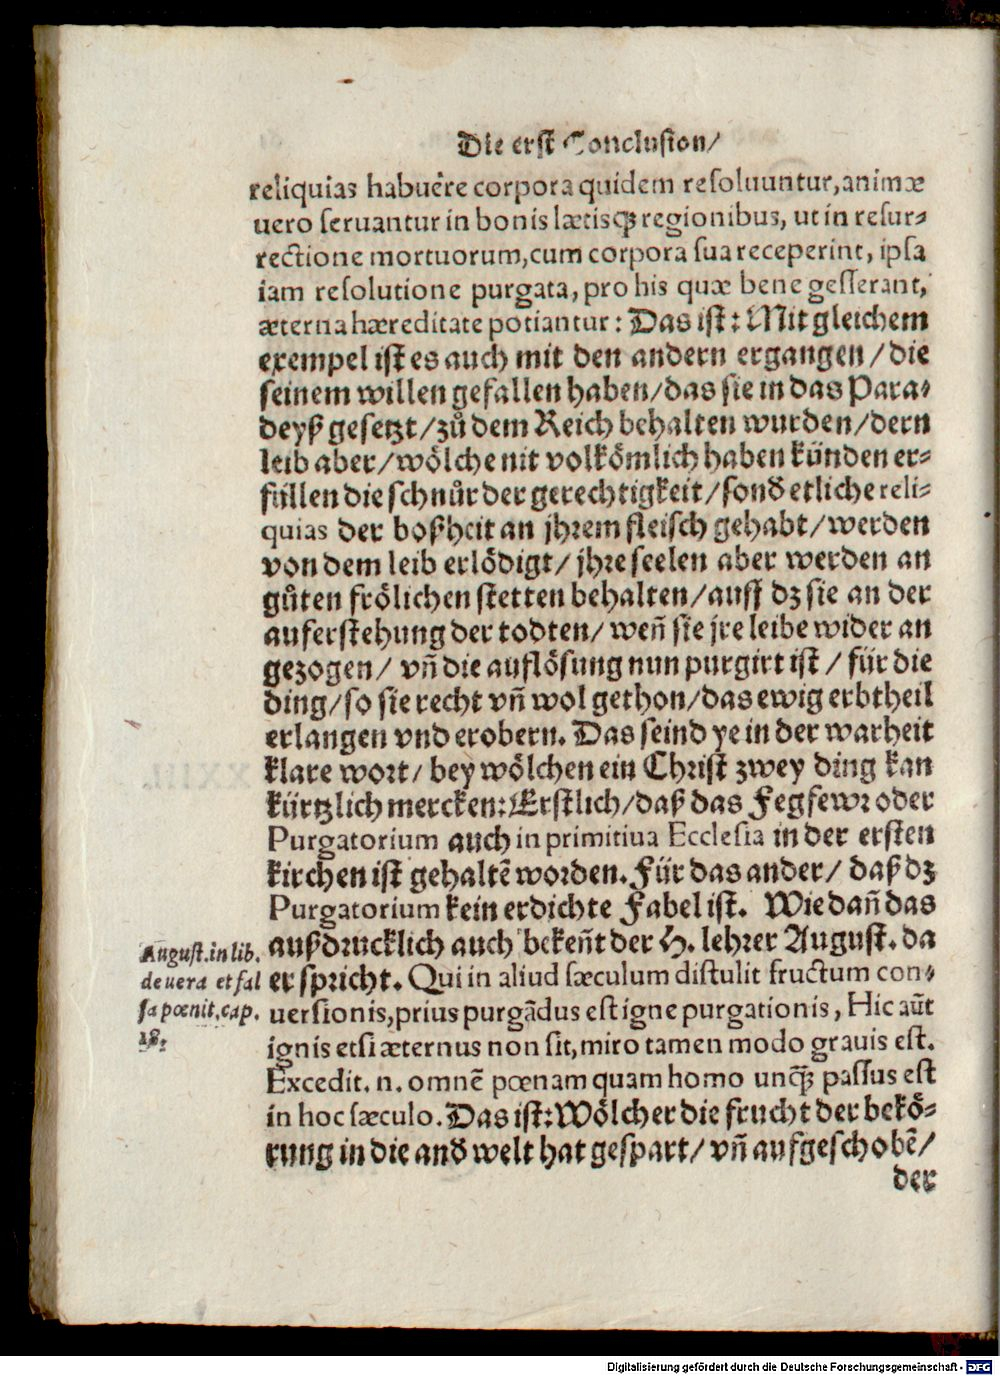 Die erst Conclusion/
reliquias habuêre corpora quidem resoluuntur, animæ
uero seruantur in bonis lætisqꝫ regionibus, ut in resur⸗
rectione mortuorum, cum corpora sua receperint, ipsa
iam resolutione purgata, pro his quæ bene gesserant,
æterna hæreditate potiantur: Das ist: Mit gleichem
exempel ist es auch mit den andern ergangen/die
seinem willen gefallen haben/das sie in das Para⸗
deyß gesetzt/zů dem Reich behalten wurden/dern
leib aber/wölche nit volkömlich haben künden er⸗
füllen die schnůr der gerechtigkeit/sond etliche reli⸗
quias der boßheit an jhrem fleisch gehabt/werden
von dem leib erlödigt/ jhre seelen aber werden an
gůten frölichen stetten behalten/auff dz sie an der
auferstehung der todten/ weñ sie jre leibe wider an
gezogen/ vñ die auflösung nun purgirt ist/ für die
ding/so sie recht vñ wol gethon/das ewig erbtheil
erlangen vnd erobern. Das seind ye in der warheit
klare wort/ bey wölchen ein Christ zwey ding kan
kürtzlich mercken: Erstlich/daß das Fegfewr oder
Purgatorium auch in primitiua Ecclesia in der ersten
kirchen ist gehaltẽ worden. Für das ander/ daß dz
Purgatorium kein erdichte Fabel ist. Wie dañ das
außdrucklich auch bekeñt der H. lehrer August. da
er spricht. Qui in aliud sæculum distulit fructum con⸗
uersionis, prius purgãdus est igne purgationis, Hic aũt
ignis etsi æternus non sit, miro tamen modo grauis est.
Excedit. n. omnẽ pœnam quam homo unqꝫ passus est
in hoc sæculo. Das ist: Wölcher die frucht der bekö⸗
rung in die and welt hat gespart/ vñ aufgeschobẽ/
der
August. in lib.
de uera et fal
sa pœnit. cap.
18.
Digitalisierung gefördert durch die Deutsche Forschungsgemeinschaft - DFG